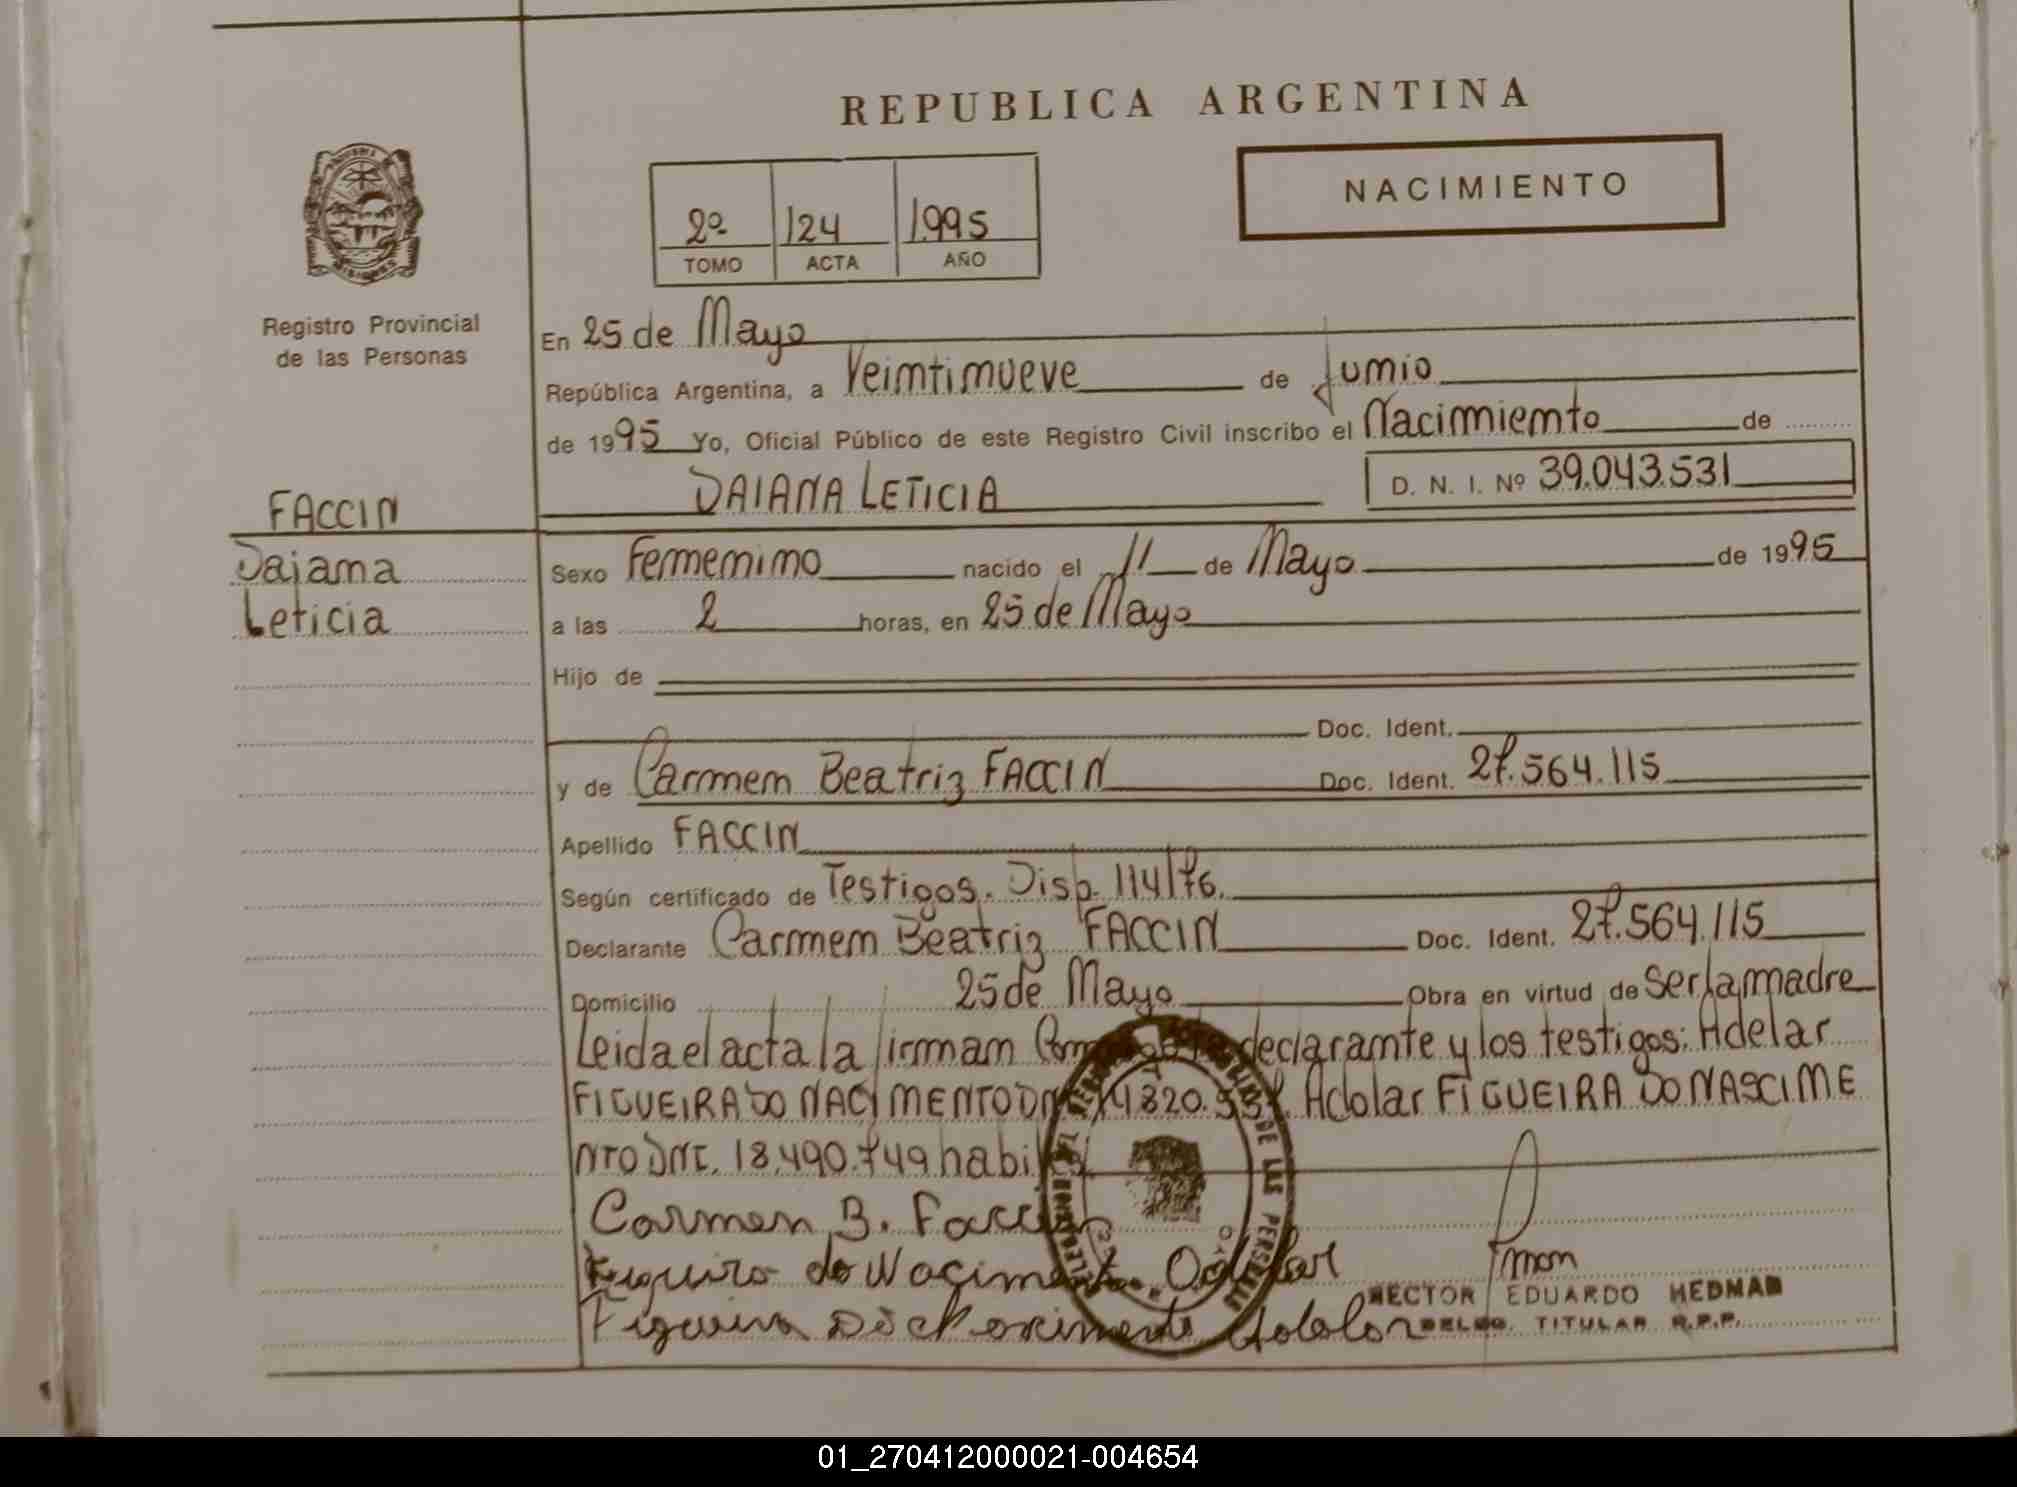 REPUBLICA ARGENTINA
NACIMIENTO
2º 124 1995
TOMO ACTA AÑO
Registro Provincial
de las Personas
En 25 de Mayo
República Argentina, a Veintinueve de Junio
de 1995 Yo, Oficial Público de este Registro Civil inscribo el Nacimiento de
DAIANA LETICIA D. N. I. Nº 39.043.531
FACCIN
Daiana
Leticia
Sexo Femenino nacido el 11 de Mayo de 1995
a las 2 horas, en 25 de Mayo
Hijo de
Doc. Ident.
y de Carmen Beatriz FACCIN Doc. Ident. 27.564.115
Apellido FACCIN
Según certificado de Testigos. Disp. 114/76.
Declarante Carmen Beatriz FACCIN Doc. Ident. 27.564.115
Domicilio 25 de Mayo Obra en virtud de Ser la madre
Leida el acta la firman declarante y los testigos: Adelar
FIGUEIRA DO NACIMENTO Adolar FIGUEIRA DO NASCIME
NTO DNI. 18.490.749
Carmen B. Faccin
HECTOR EDUARDO HEDMAN
DELEG. TITULAR R.P.P.
01_270412000021-004654